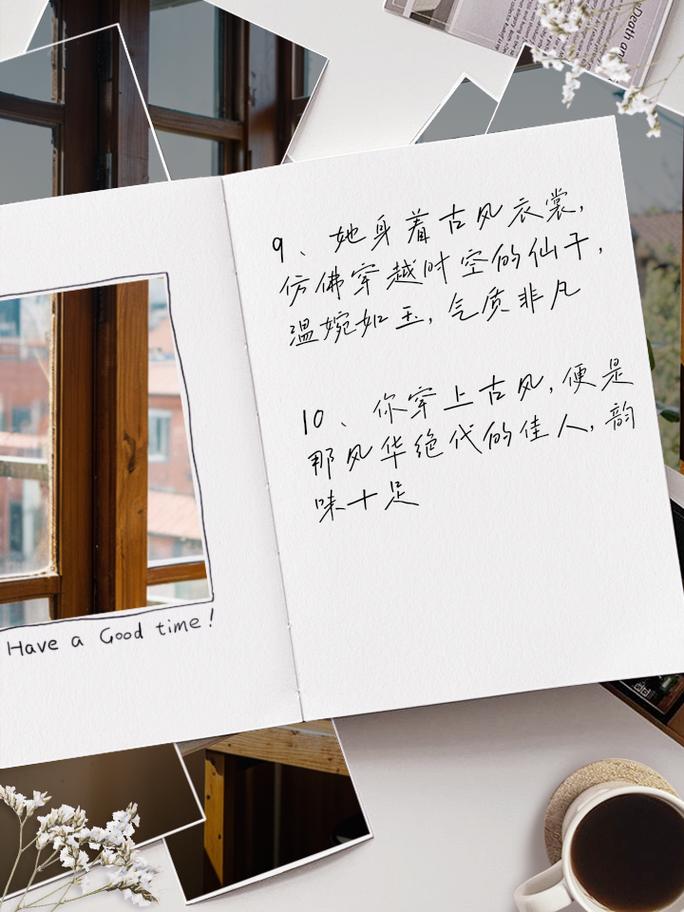 Death an
Have a Good time!
9、她身着古风衣裳,
仿佛穿越时空的仙子,
温婉如玉,气质非凡
10、你穿上古风,便是
那风华绝代的佳人,韵
味十足